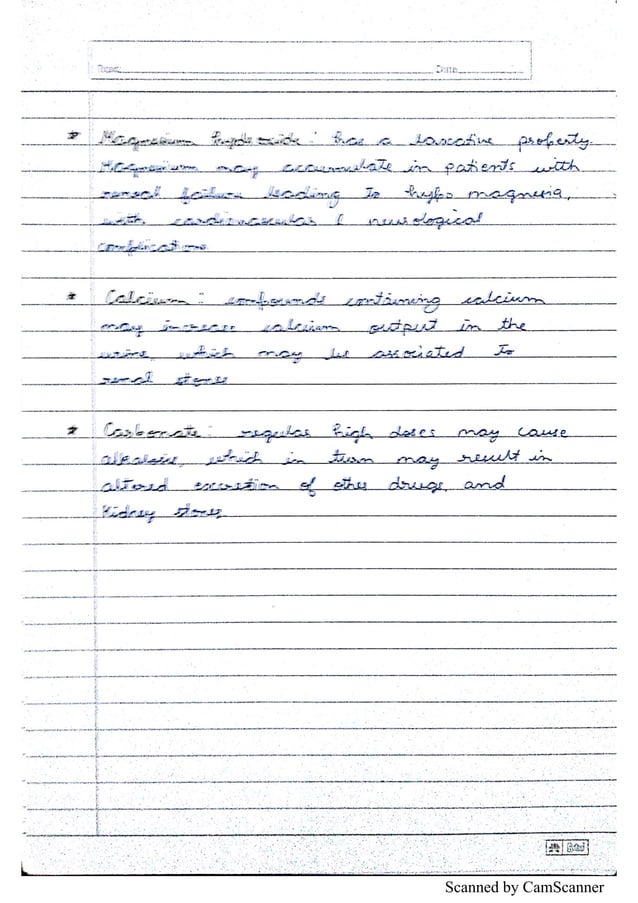 Date
* Magnesium hydroxide : has a laxative property.
Magnesium may accumulate in patients with
renal failure leading to hypo magnesia,
with cardiovascular & neurological
complications
* Calcium : compounds containing calcium
may increase calcium output in the
urine, which may be associated to
renal stones
* Carbonate : regular high doses may cause
alkalosis, which in turn may result in
altered excretion of other drugs, and
kidney stones
Scanned by CamScanner